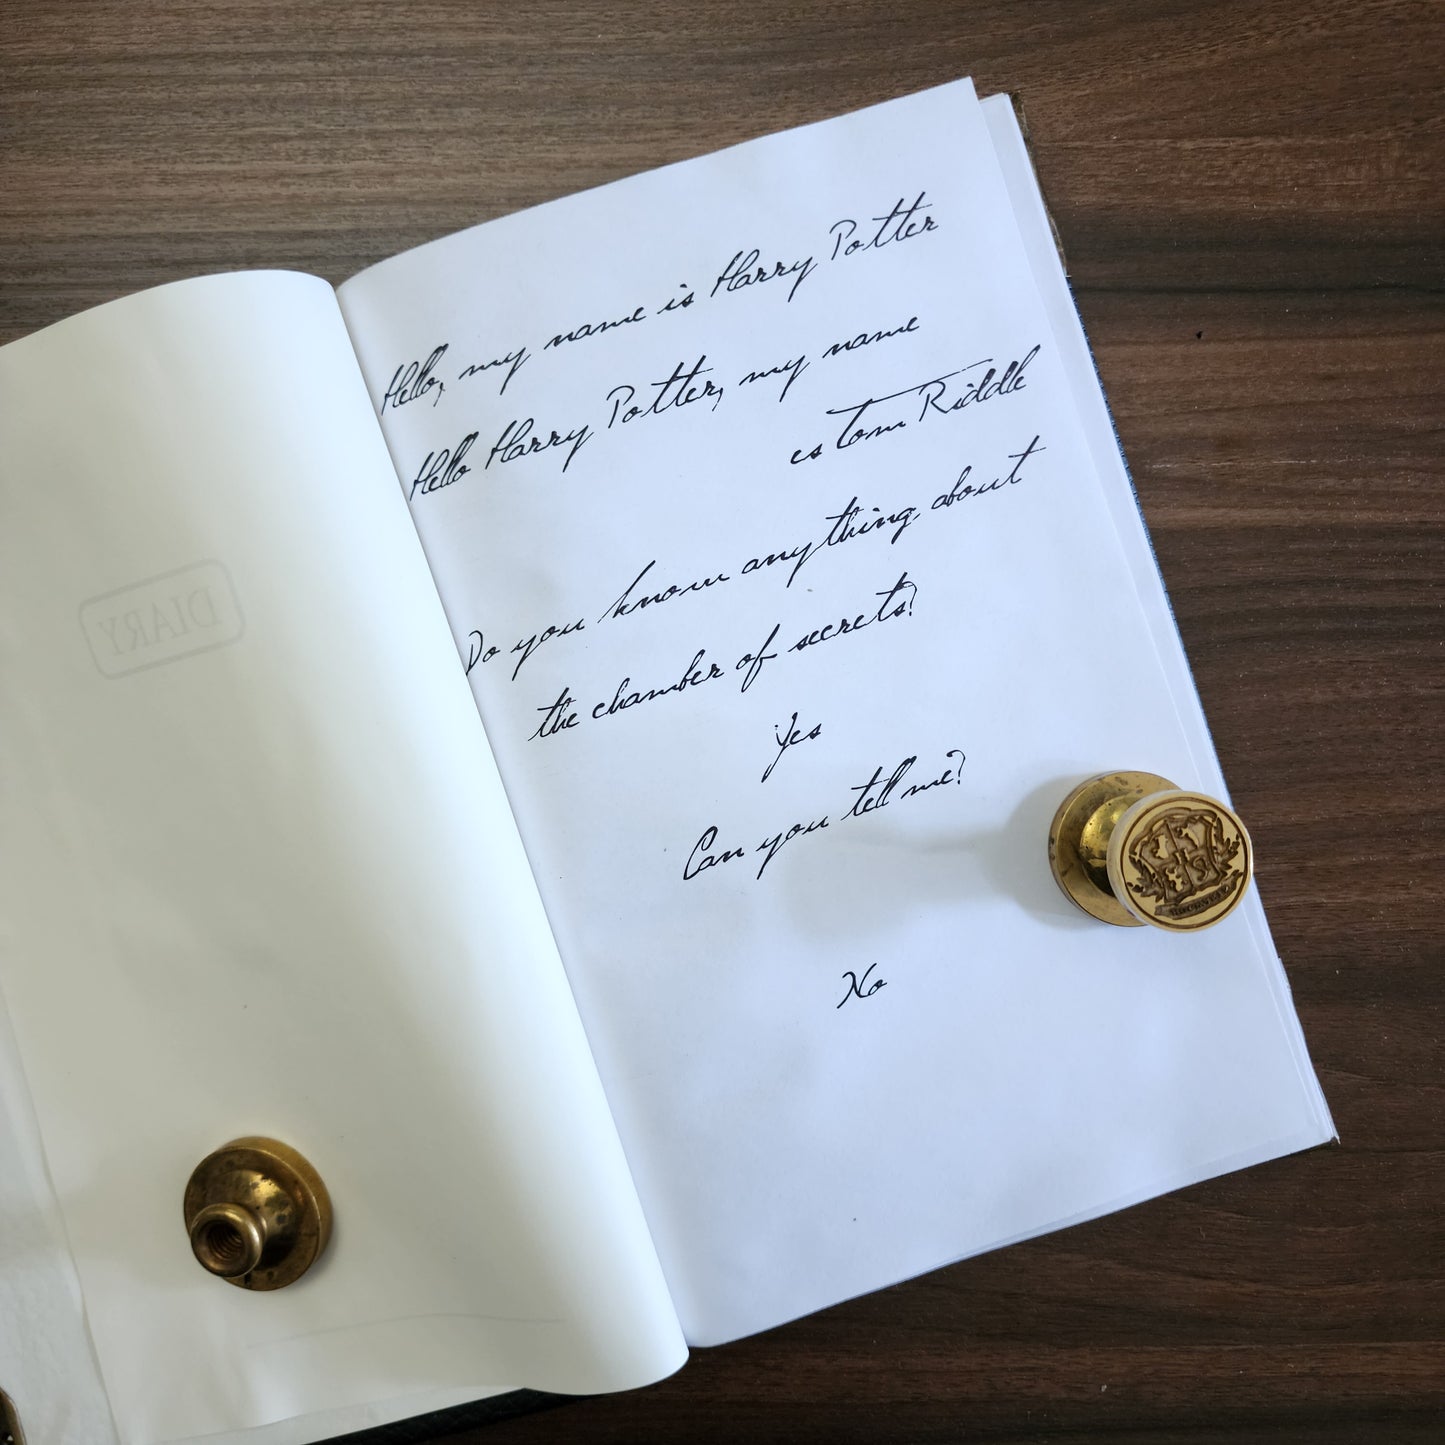 DIARY
Hello, my name is Harry Potter
Hello Harry Potter, my name
is Tom Riddle
Do you know anything about
the chamber of secrets?
Yes
Can you tell me?
No